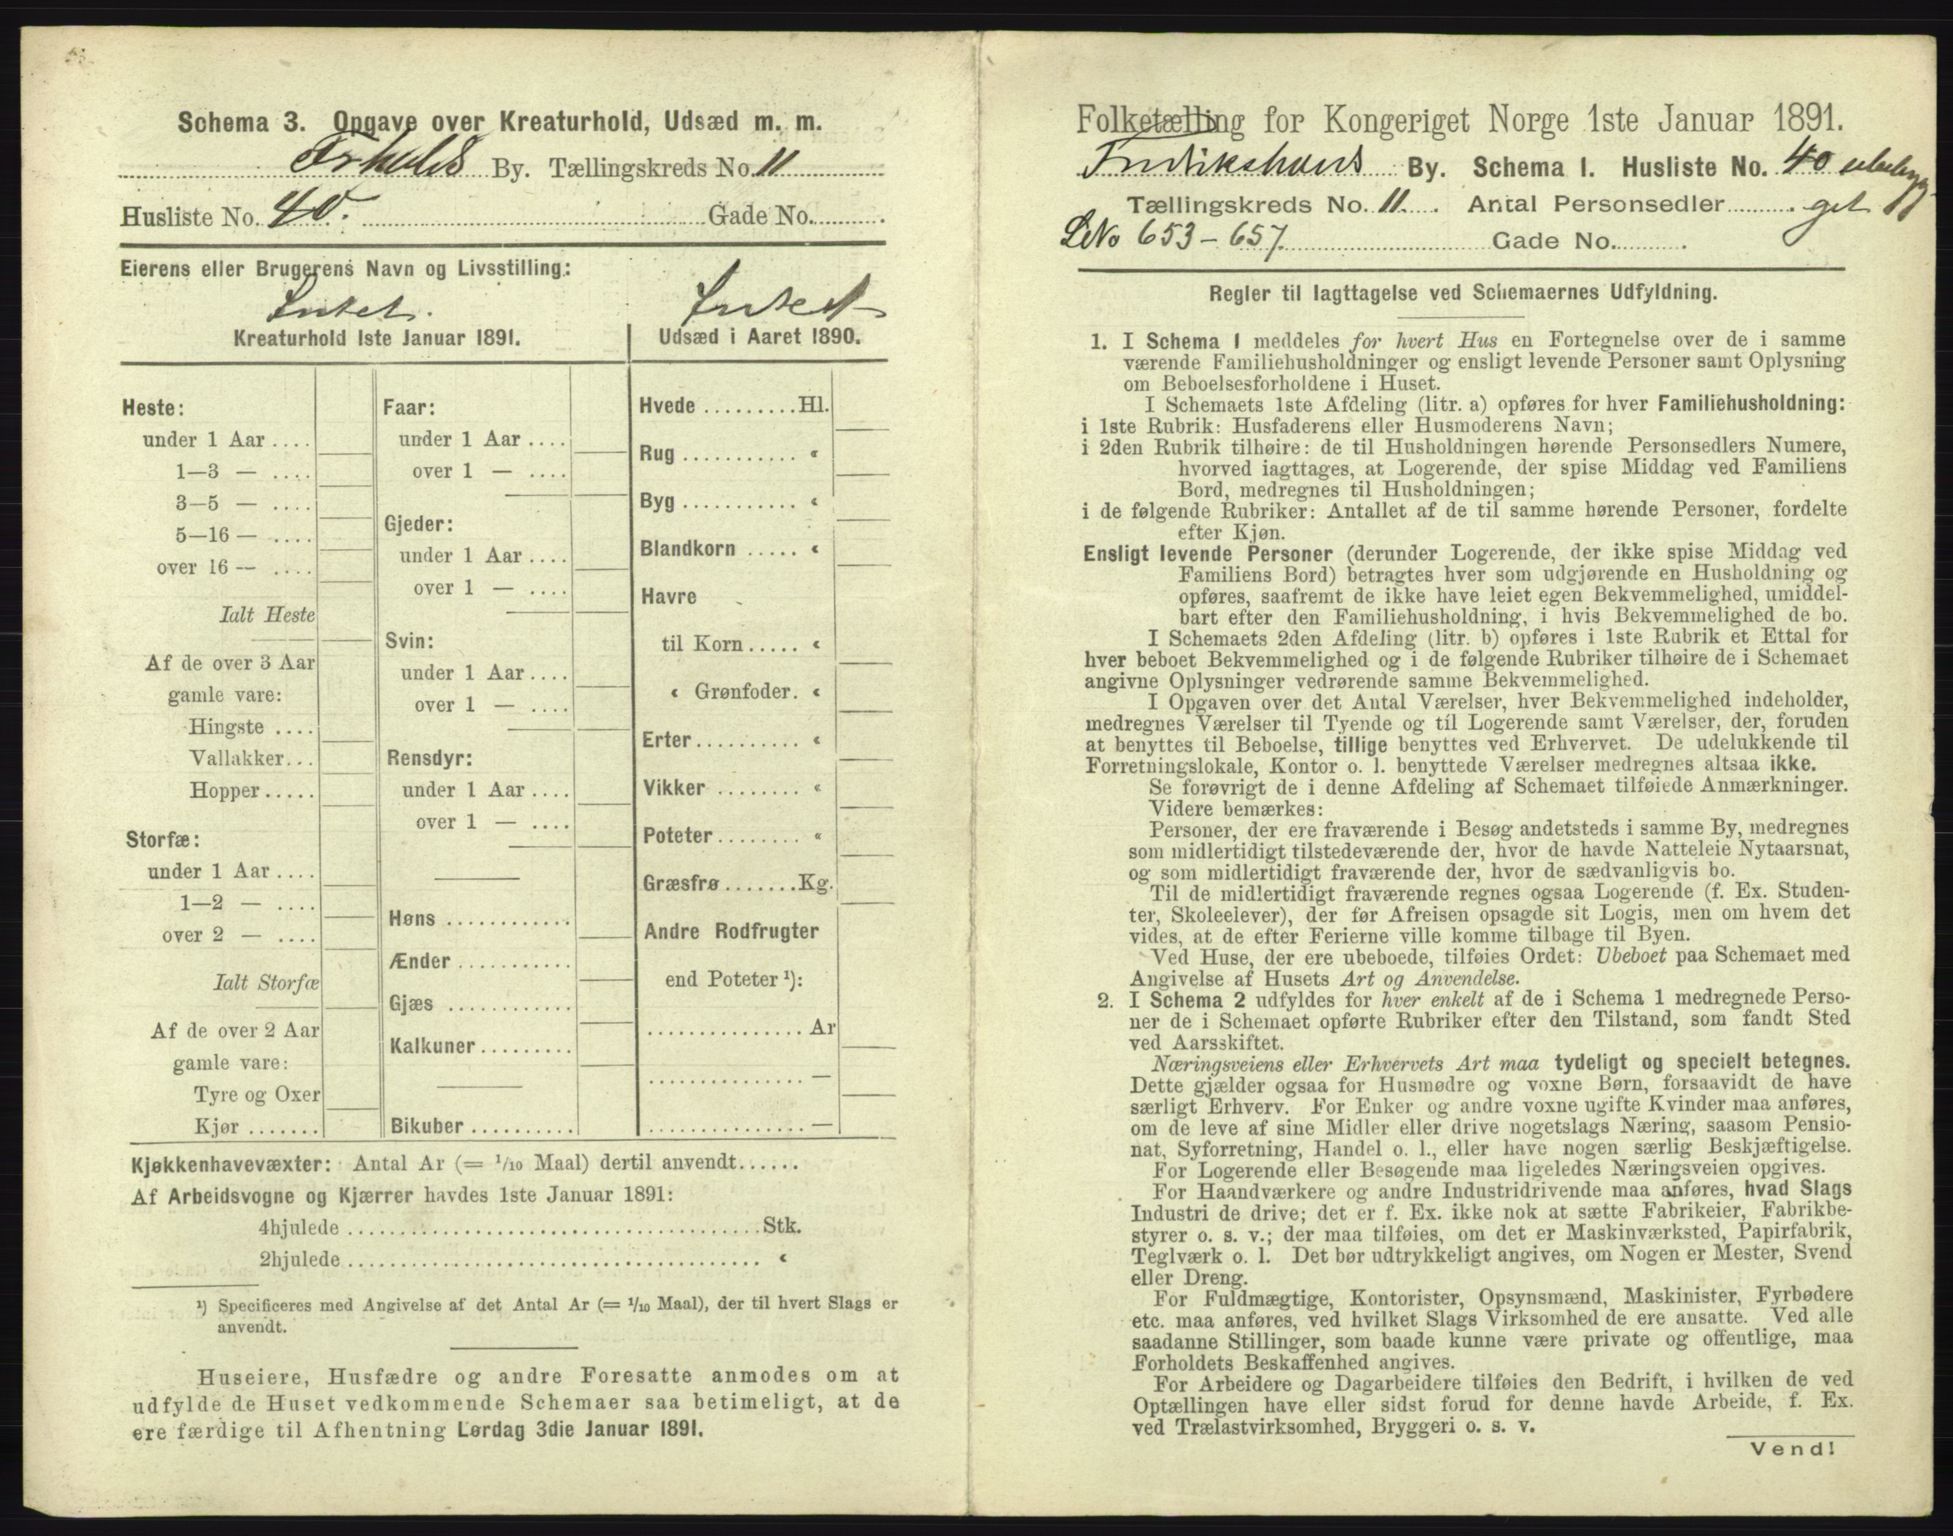 Schema 3. Opgave over Kreaturhold, Udsæd m. m.
Frhalds By. Tællingskreds No. 11
Husliste No. 40. Gade No.
Eierens eller Brugerens Navn og Livsstilling:
Intet. Intet
Kreaturhold 1ste Januar 1891.
Udsæd i Aaret 1890.
Heste:
under 1 Aar ....
1—3 — ....
3—5 — ....
5—16 — ....
over 16 — ....
Ialt Heste
Af de over 3 Aar
gamle vare:
Hingste ....
Vallakker...
Hopper.....
Storfæ:
under 1 Aar ....
1—2 — ....
over 2 — ....
Ialt Storfæ
Af de over 2 Aar
gamle vare:
Tyre og Oxer
Kjør .......
Faar:
under 1 Aar ....
over 1 — ....
Gjeder:
under 1 Aar ....
over 1 — ....
Svin:
under 1 Aar ....
over 1 — ....
Rensdyr:
under 1 Aar ....
over 1 — ....
Høns ............
Ænder ...........
Gjæs ............
Kalkuner.........
Bikuber ..........
Hvede .........Hl.
Rug ........... «
Byg ........... «
Blandkorn ..... «
Havre
til Korn..... «
« Grønfoder. «
Erter.......... «
Vikker ........ «
Poteter........ «
Græsfrø .......Kg.
Andre Rodfrugter
end Poteter ¹):
............... Ar
............... —
............... —
Kjøkkenhavevæxter: Antal Ar (= 1/10 Maal) dertil anvendt......
Af Arbeidsvogne og Kjærrer havdes 1ste Januar 1891:
4hjulede ........................................Stk.
2hjulede ........................................ «
¹) Specificeres med Angivelse af det Antal Ar (= 1/10 Maal), der til hvert Slags er
anvendt.
Huseiere, Husfædre og andre Foresatte anmodes om at
udfylde de Huset vedkommende Schemaer saa betimeligt, at de
ere færdige til Afhentning Lørdag 3die Januar 1891.
Folketælling for Kongeriget Norge 1ste Januar 1891.
Fredrikshalds By. Schema I. Husliste No. 40 ubebyg-
Tællingskreds No. 11. Antal Personsedler get
LNo 653-657. Gade No.
Regler til Iagttagelse ved Schemaernes Udfyldning.
1. I Schema 1 meddeles for hvert Hus en Fortegnelse over de i samme
værende Familiehusholdninger og ensligt levende Personer samt Oplysning
om Beboelsesforholdene i Huset.
I Schemaets 1ste Afdeling (litr. a) opføres for hver Familiehusholdning:
i 1ste Rubrik: Husfaderens eller Husmoderens Navn;
i 2den Rubrik tilhøire: de til Husholdningen hørende Personsedlers Numere,
hvorved iagttages, at Logerende, der spise Middag ved Familiens
Bord, medregnes til Husholdningen;
i de følgende Rubriker: Antallet af de til samme hørende Personer, fordelte
efter Kjøn.
Ensligt levende Personer (derunder Logerende, der ikke spise Middag ved
Familiens Bord) betragtes hver som udgjørende en Husholdning og
opføres, saafremt de ikke have leiet egen Bekvemmelighed, umiddel-
bart efter den Familiehusholdning, i hvis Bekvemmelighed de bo.
I Schemaets 2den Afdeling (litr. b) opføres i 1ste Rubrik et Ettal for
hver beboet Bekvemmelighed og i de følgende Rubriker tilhøire de i Schemaet
angivne Oplysninger vedrørende samme Bekvemmelighed.
I Opgaven over det Antal Værelser, hver Bekvemmelighed indeholder,
medregnes Værelser til Tyende og til Logerende samt Værelser, der, foruden
at benyttes til Beboelse, tillige benyttes ved Erhvervet. De udelukkende til
Forretningslokale, Kontor o. l. benyttede Værelser medregnes altsaa ikke.
Se forøvrigt de i denne Afdeling af Schemaet tilføiede Anmærkninger.
Videre bemærkes:
Personer, der ere fraværende i Besøg andetsteds i samme By, medregnes
som midlertidigt tilstedeværende der, hvor de havde Natteleie Nytaarsnat,
og som midlertidigt fraværende der, hvor de sædvanligvis bo.
Til de midlertidigt fraværende regnes ogsaa Logerende (f. Ex. Studen-
ter, Skoleelever), der før Afreisen opsagde sit Logis, men om hvem det
vides, at de efter Ferierne ville komme tilbage til Byen.
Ved Huse, der ere ubeboede, tilføies Ordet: Ubeboet paa Schemaet med
Angivelse af Husets Art og Anvendelse.
2. I Schema 2 udfyldes for hver enkelt af de i Schema 1 medregnede Perso-
ner de i Schemaet opførte Rubriker efter den Tilstand, som fandt Sted
ved Aarsskiftet.
Næringsveiens eller Erhvervets Art maa tydeligt og specielt betegnes.
Dette gjælder ogsaa for Husmødre og voxne Børn, forsaavidt de have
særligt Erhverv. For Enker og andre voxne ugifte Kvinder maa anføres,
om de leve af sine Midler eller drive nogetslags Næring, saasom Pensio-
nat, Syforretning, Handel o. l., eller have nogen særlig Beskjæftigelse.
For Logerende eller Besøgende maa ligeledes Næringsveien opgives.
For Haandværkere og andre Industridrivende maa anføres, hvad Slags
Industri de drive; det er f. Ex. ikke nok at sætte Fabrikeier, Fabrikbe-
styrer o. s. v.; der maa tilføies, om det er Maskinværksted, Papirfabrik,
Teglværk o. l. Det bør udtrykkeligt angives, om Nogen er Mester, Svend
eller Dreng.
For Fuldmægtige, Kontorister, Opsynsmænd, Maskinister, Fyrbødere
etc. maa anføres, ved hvilket Slags Virksomhed de ere ansatte. Ved alle
saadanne Stillinger, som baade kunne være private og offentlige, maa
Forholdets Beskaffenhed angives.
For Arbeidere og Dagarbeidere tilføies den Bedrift, i hvilken de ved
Optællingen have eller sidst forud for denne havde Arbeide, f. Ex.
ved Trælastvirksomhed, Bryggeri o. s. v.
Vend!